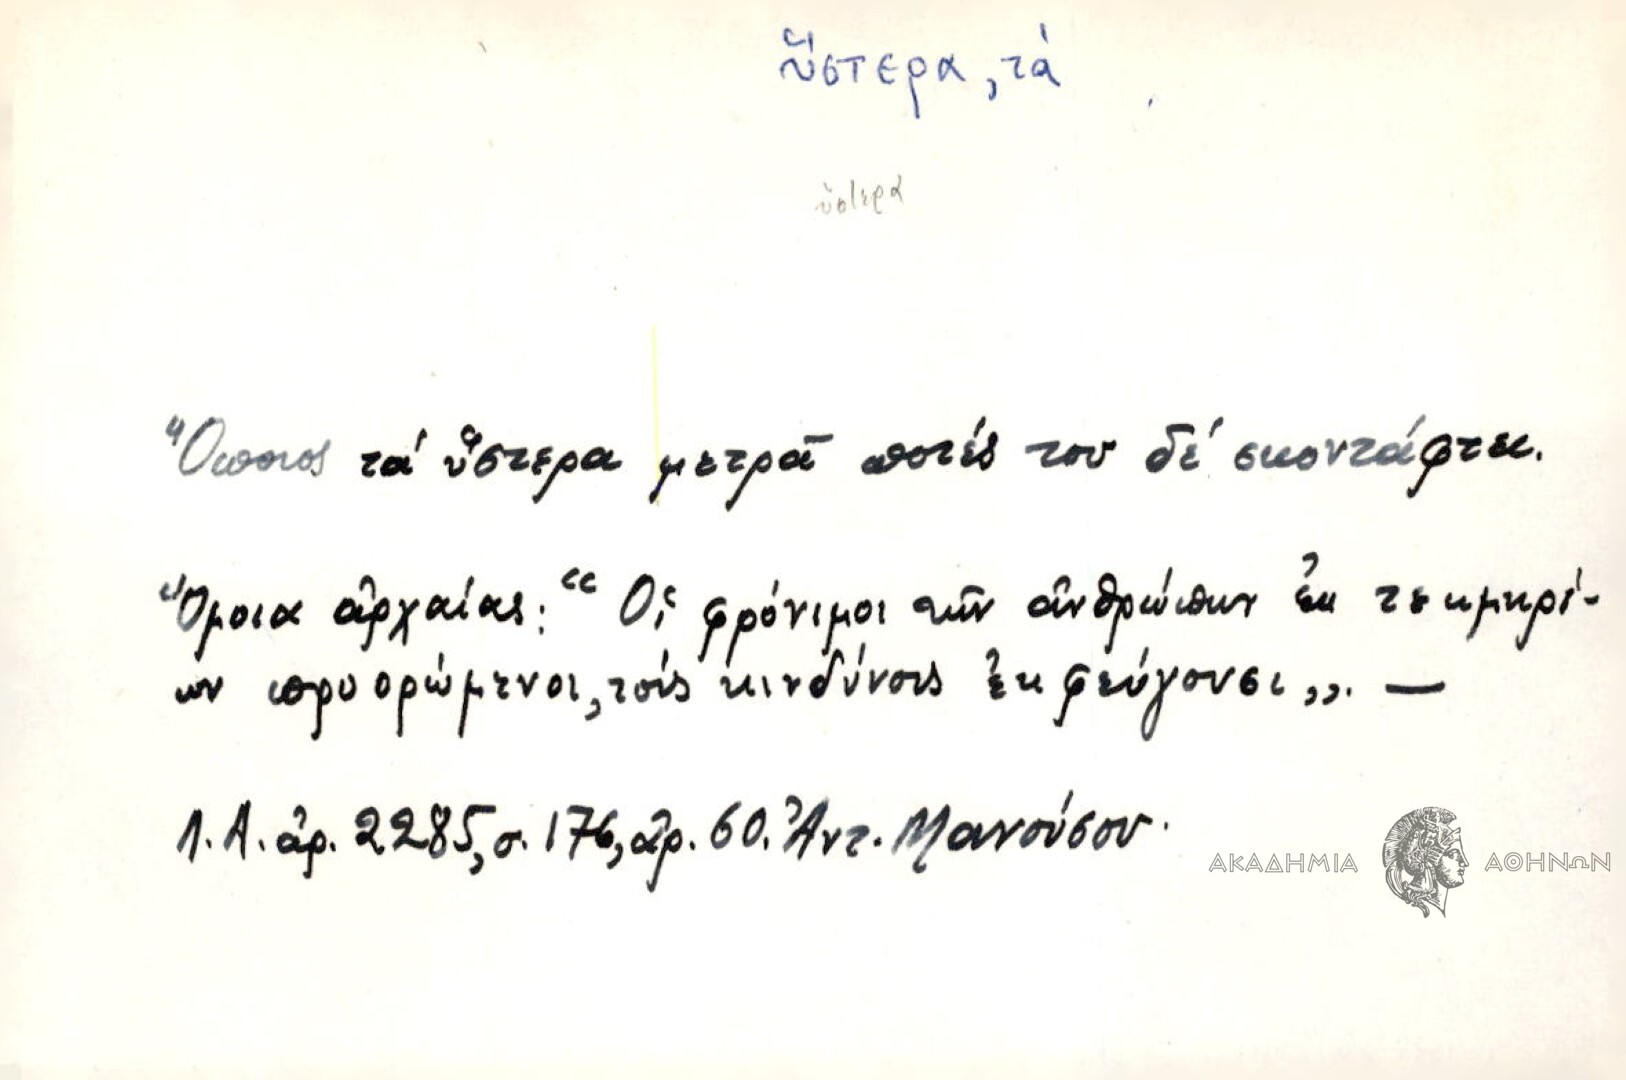 ὕστερα, τά
ὕστερα
Ὅποιος τά ὕστερα μετρᾶ ποτές του δέ σκοντάφτει.
Ὅμοια ἀρχαίας: "Οἱ φρόνιμοι τῶν ἀνθρώπων ἐκ τεκμηρί-
ων προορώμενοι, τούς κινδύνους ἐκφεύγουσι„. —
Λ.Α. ἀρ. 2285, σ. 176, ἀρ. 60. Ἀντ. Μανούσου.
ΑΚΑΔΗΜΙΑ ΑΘΗΝΩΝ